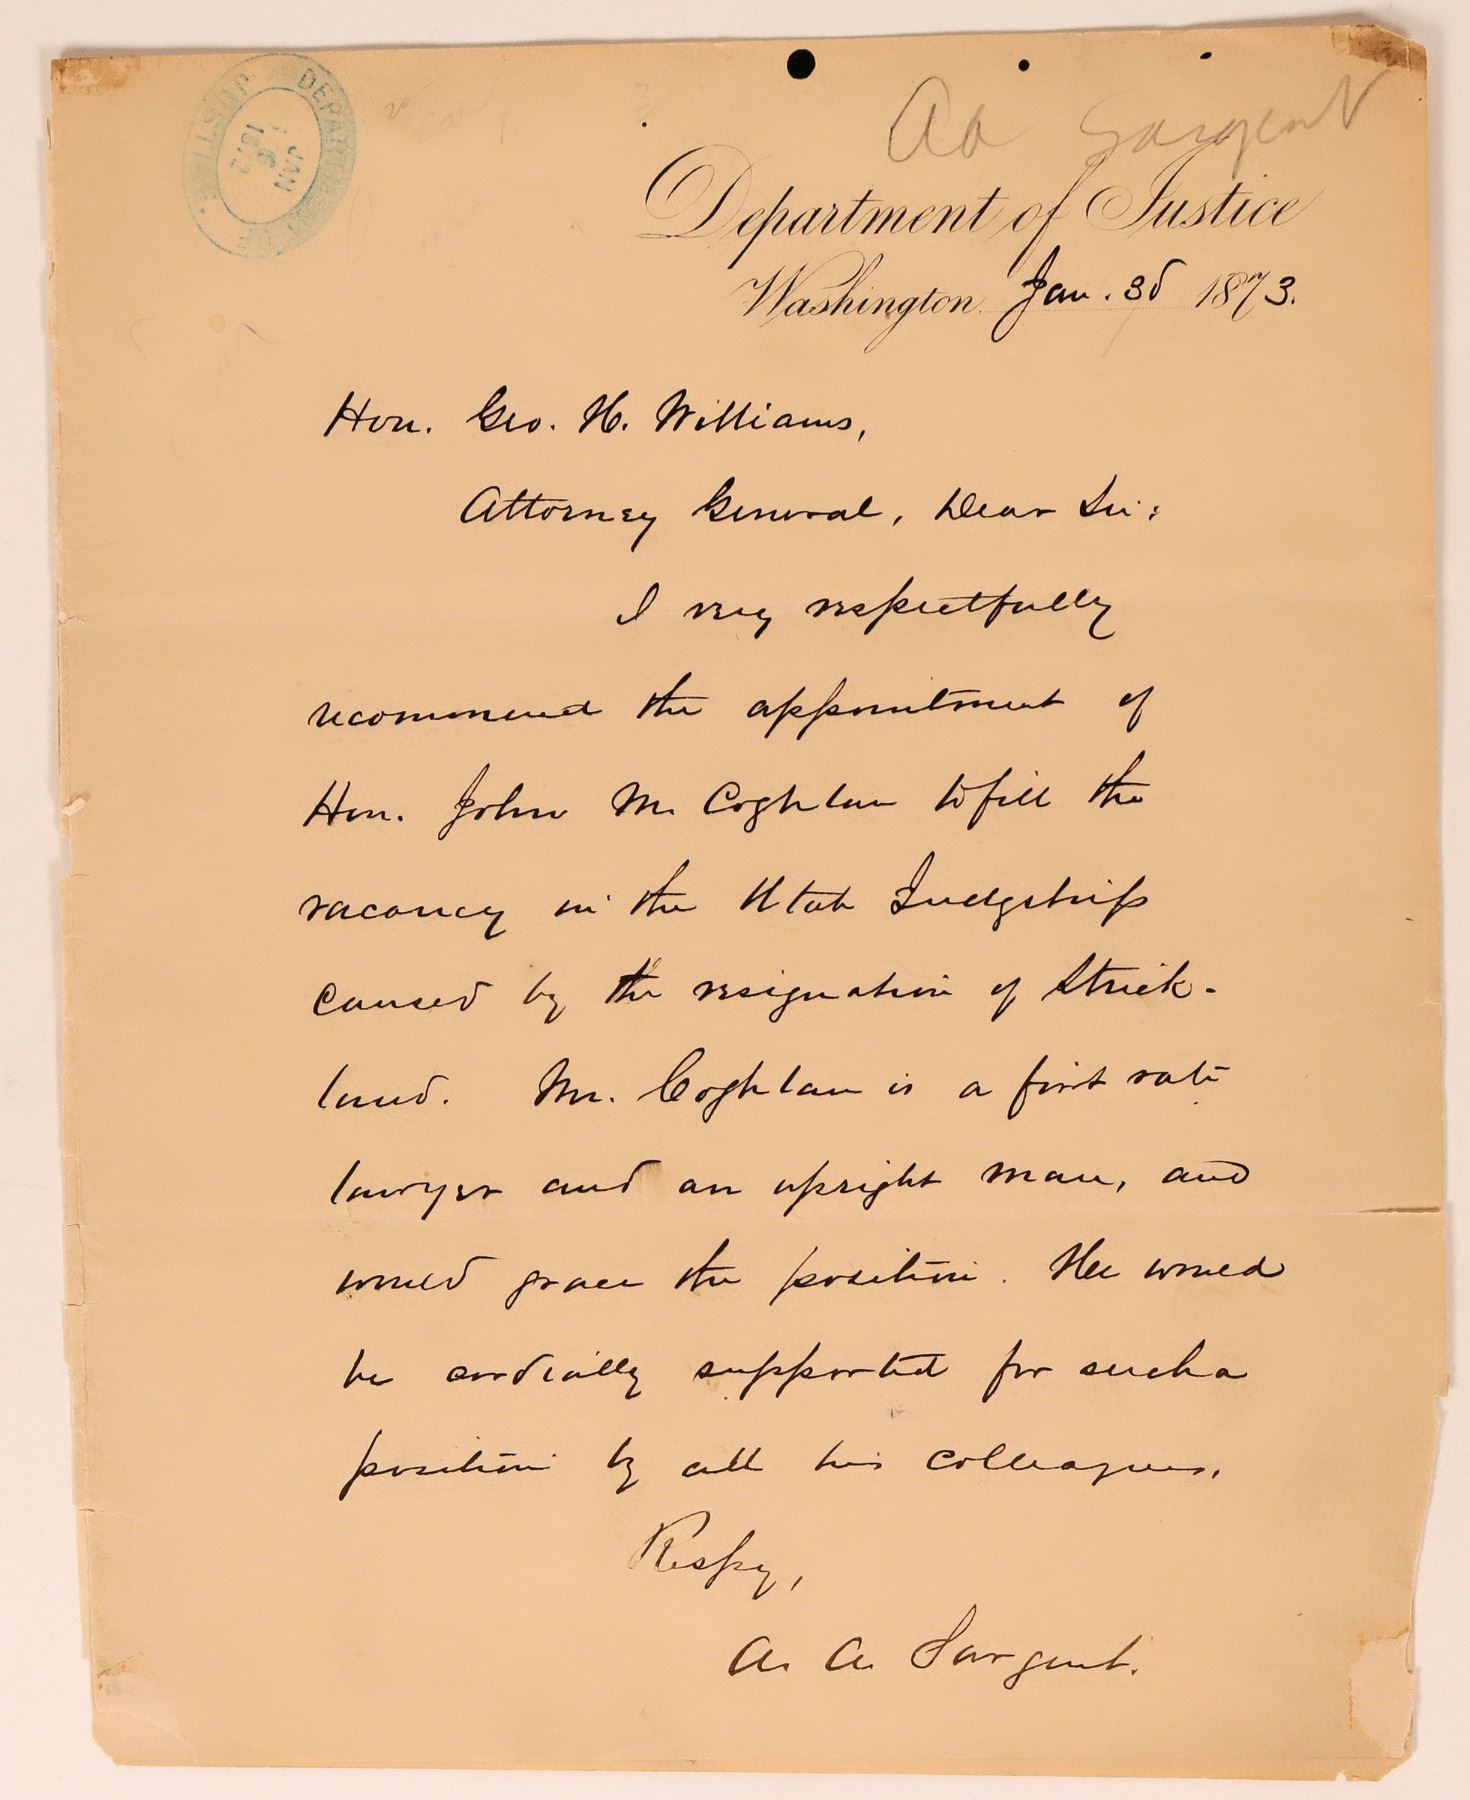 DEPARTMENT OF JUSTICE
JAN
1872
AA Sargent
Department of Justice
Washington Jan. 3d 1873.
Hon. Geo. H. Williams,
Attorney General, Dear Sir:
I very respectfully
recommend the appointment of
Hon. John M. Coghlan to fill the
vacancy in the Utah Judgeship
caused by the resignation of Strick-
land. Mr. Coghlan is a first rate
lawyer and an upright man, and
would grace the position. He would
be cordially supported for such a
position by all his colleagues.
Respy,
A. A. Sargent.